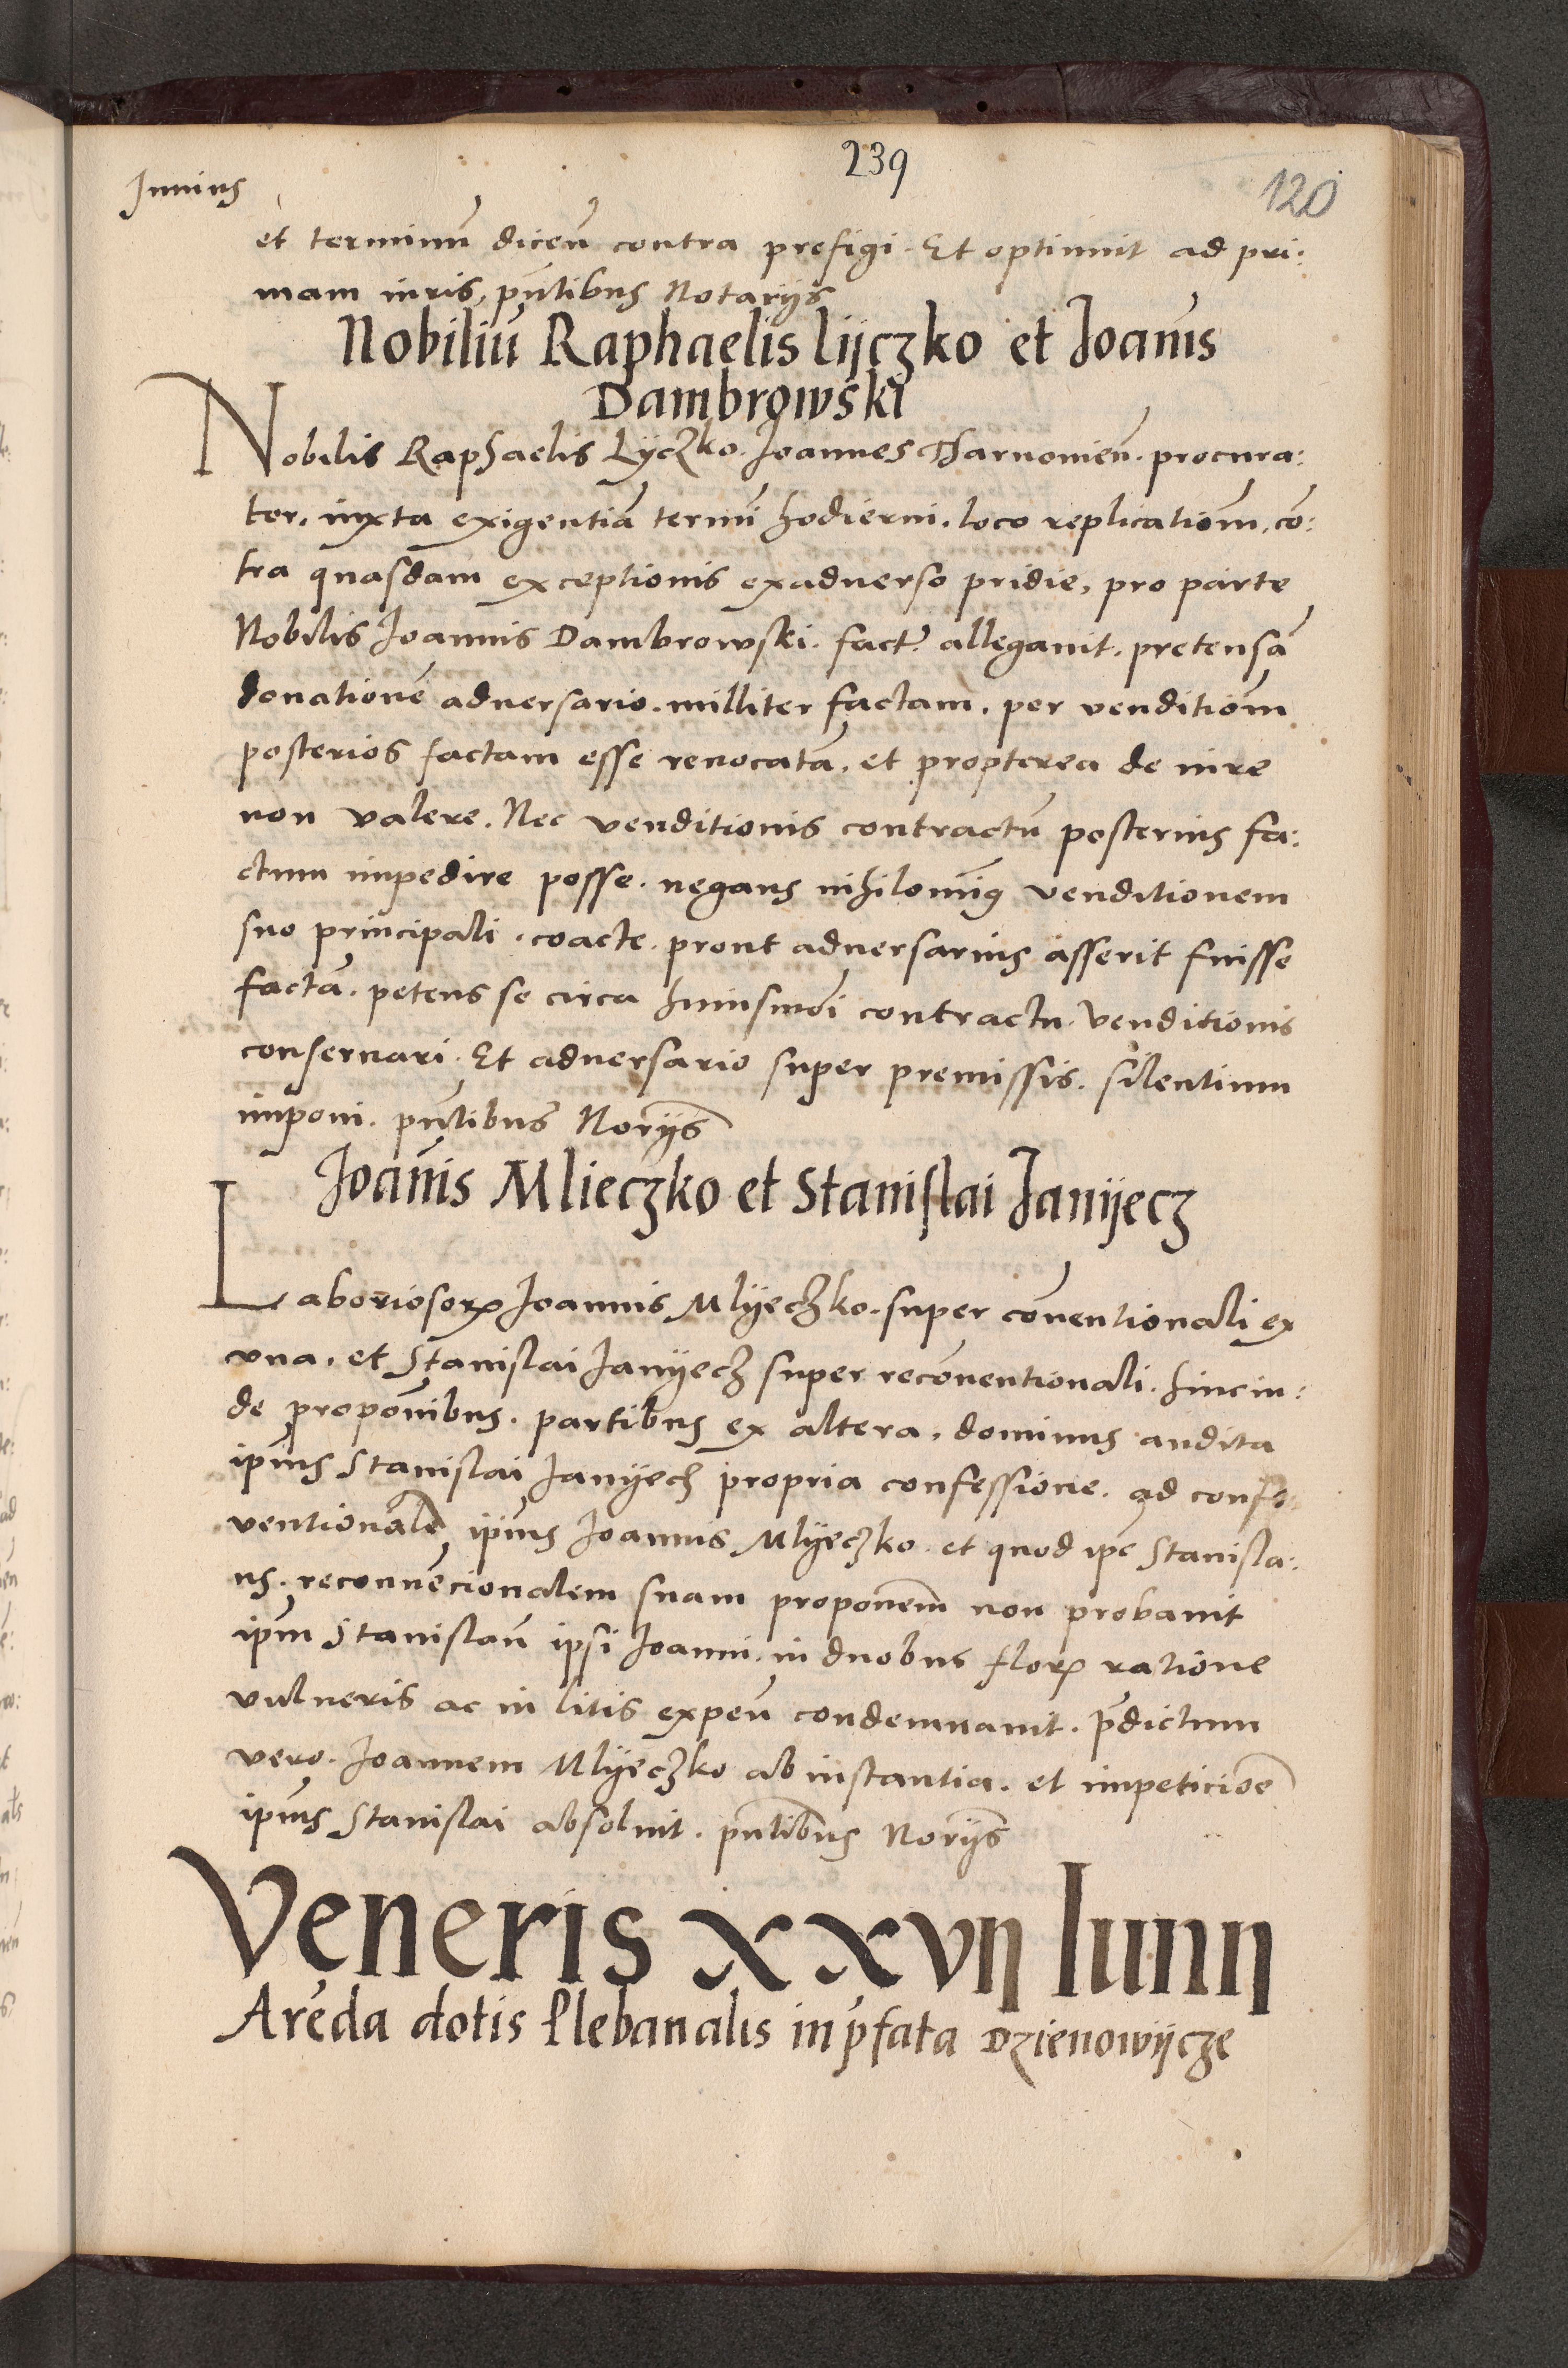 239
120
Junius
et terminũ diceñ contra prefigi. Et optinuit ad pri:
mam iuris, pñtibus Notarijs
Nobiliũ Raphaelis Lijczko et Joañis
Dambrowski
Nobilis Raphaelis Lyczko. Joannes Tharnowieñ. procura:
tor. iuxta exigentiã termĩ hodierni. loco replicationm̃, cõ:
tra quasdam exceptionis exadverso pridie, pro parte
Nobilis Joannis Dambrowski. fact. allegavit. pretensã
donationẽ adversario. nulliter factam. per venditionm̃
posterios factam esse revocatã. et propterea de iure
non valere. Nec venditionis contractũ posterius fa:
ctum impedire posse. negans nihilomiꝰ venditionem
suo principali. coacte. prout adversarius asserit fuisse
factã. petens se circa huiusmõi contractu. venditionis
conservari. Et adversario super premissis. silentium
imponi. pñtibus Norijs
Joañis Mlieczko et Stanislai Janijecz
Laboriosoꝝ Joannis Mlyeczko. super cõventionali ex
vna. et Stanislai Janyecz super recõventionali. hincin:
de propoñibus. partibus ex altera. dominus audita
ip̃ius Stanislai Janyech propria confessione. ad
ventionalẽ ip̃ius Joannis Mlyeczko. et quod ip̃e Stanisla:
us. reconvẽcionalem suam proponem̃ non probavit
ip̃m Stanislaũ ipsi Joanni. in duobus floꝝ ratione
vulneris ac in litis expeñ condemnavit. p̃dictum
vero. Joannem Mlyeczko ab instantia. et impeticiõe
ip̃ius Stanislai absolvit. pñtibus Norijs
Veneris xxvij Iunij
Arẽda dotis Plebanalis in p̃fata Dzienowijcze